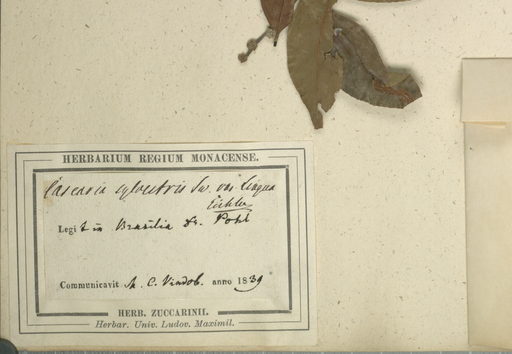 HERBARIUM REGIUM MONACENSE.
Casearia sylvestris Sw. var. Lingua
Eichler
Legit in Brasilia Dr. Pohl
Communicavit M. C. Vindob. anno 1839
HERB. ZUCCARINII.
Herbar. Univ. Ludov. Maximil.